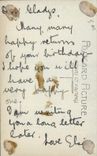 Dear Gladys,
Many, many
happy returns
of your birthday
I hope you will
have a
very happy
one.
I am writing
you a long letter
later.
Love